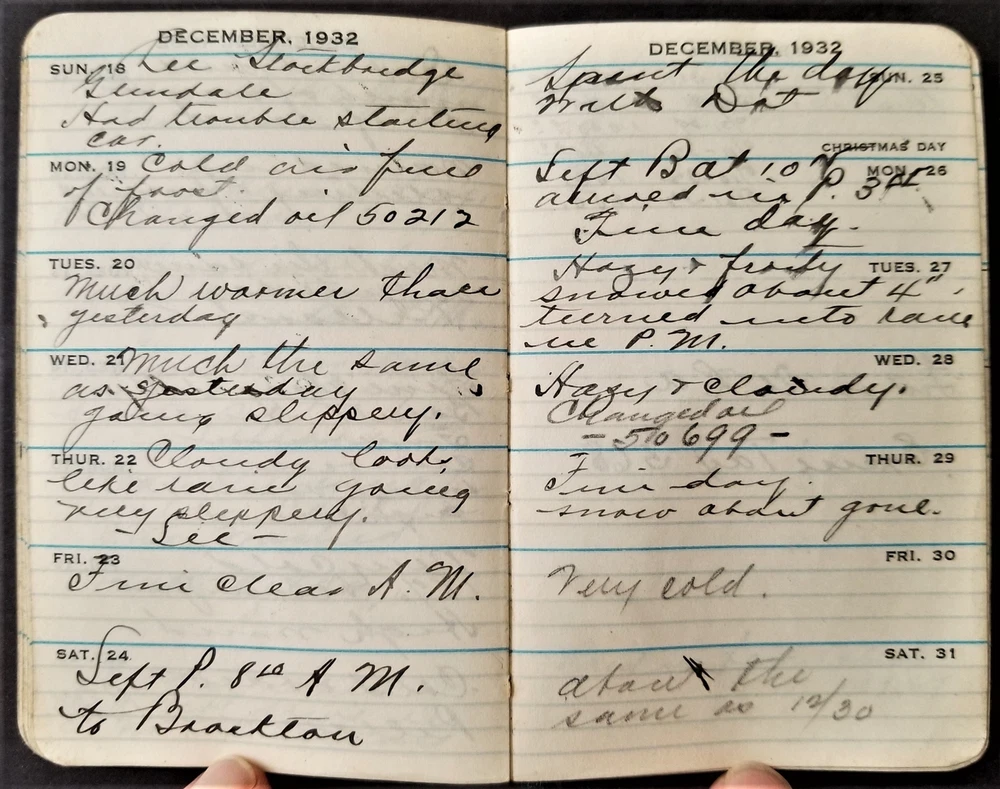 DECEMBER, 1932
SUN. 18 Lee Stockbridge
Glendale
Had trouble starting
car.
MON. 19 Cold air full
of frost.
Changed oil 50212
TUES. 20
Much warmer than
yesterday
WED. 21 Much the same
as yesterday
going slippery.
THUR. 22 Cloudy looks
like rain going
very slippery.
- Lee -
FRI. 23
Fine clear A. M.
SAT. 24
Left P. 8 A M.
to Brockton
DECEMBER, 1932
Spent the day SUN. 25
with Dot
CHRISTMAS DAY
Left B at 10 MON. 26
arrived in P. 3
Fine day.
Hazy & frosty TUES. 27
snowed about 4",
turned into rain
in P. M.
WED. 28
Hazy & cloudy.
Changed oil
- 50699 -
THUR. 29
Fine day.
snow about gone.
FRI. 30
Very cold.
SAT. 31
about the
same as 12/30